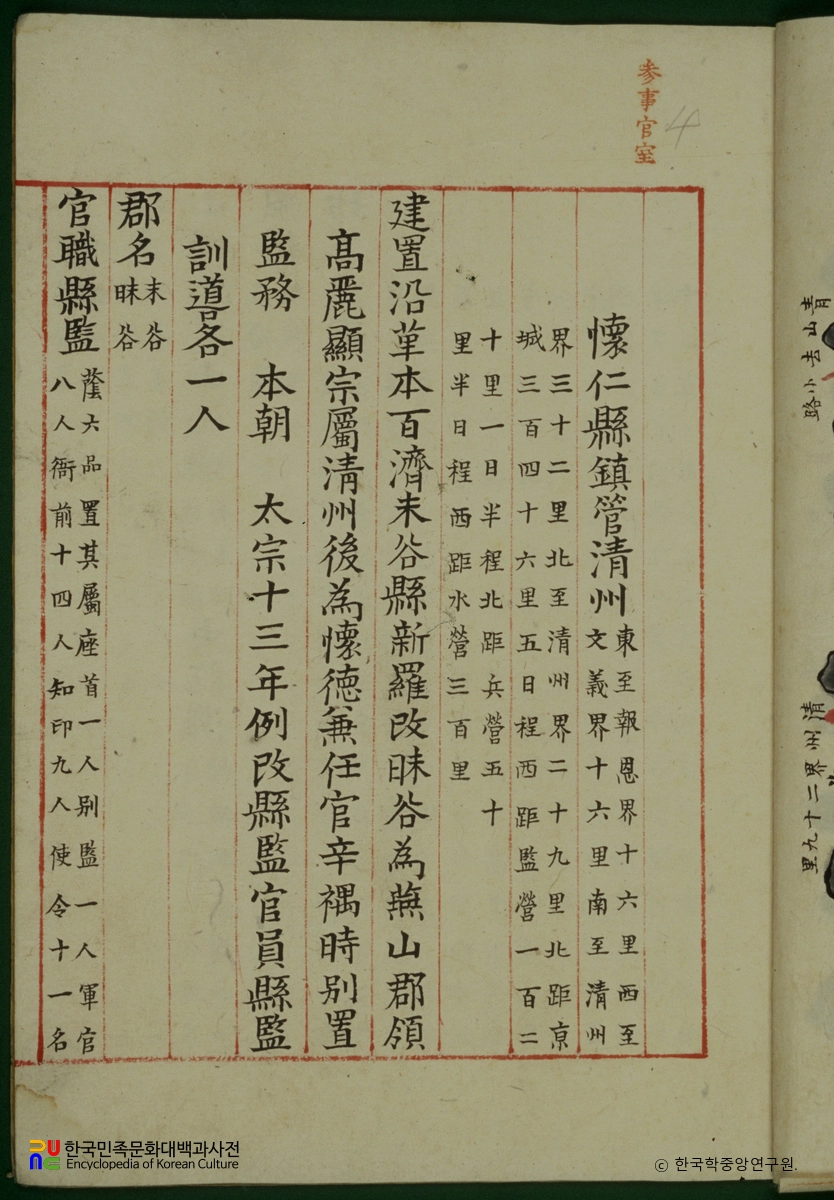 参事官室
4
懷仁縣鎮管淸州
東至報恩界十六里西至
文義界十六里南至淸州
界三十二里北至淸州界二十九里北距京
城三百四十六里五日程西距監營一百二
十里一日半程北距兵營五十
里半日程西距水營三百里
建置沿革本百濟未谷縣新羅改昧谷為燕山郡領
高麗顯宗屬淸州後為懷德兼任官辛禑時別置
監務 本朝 太宗十三年例改縣監官員縣監
訓導各一人
郡名
未谷
昧谷
官職縣監
蔭六品置其屬座首一人別監一人軍官
八人衙前十四人知印九人使令十一名
靑山去小路
淸州界二十九里
한국민족문화대백과사전
Encyclopedia of Korean Culture
ⓒ 한국학중앙연구원.